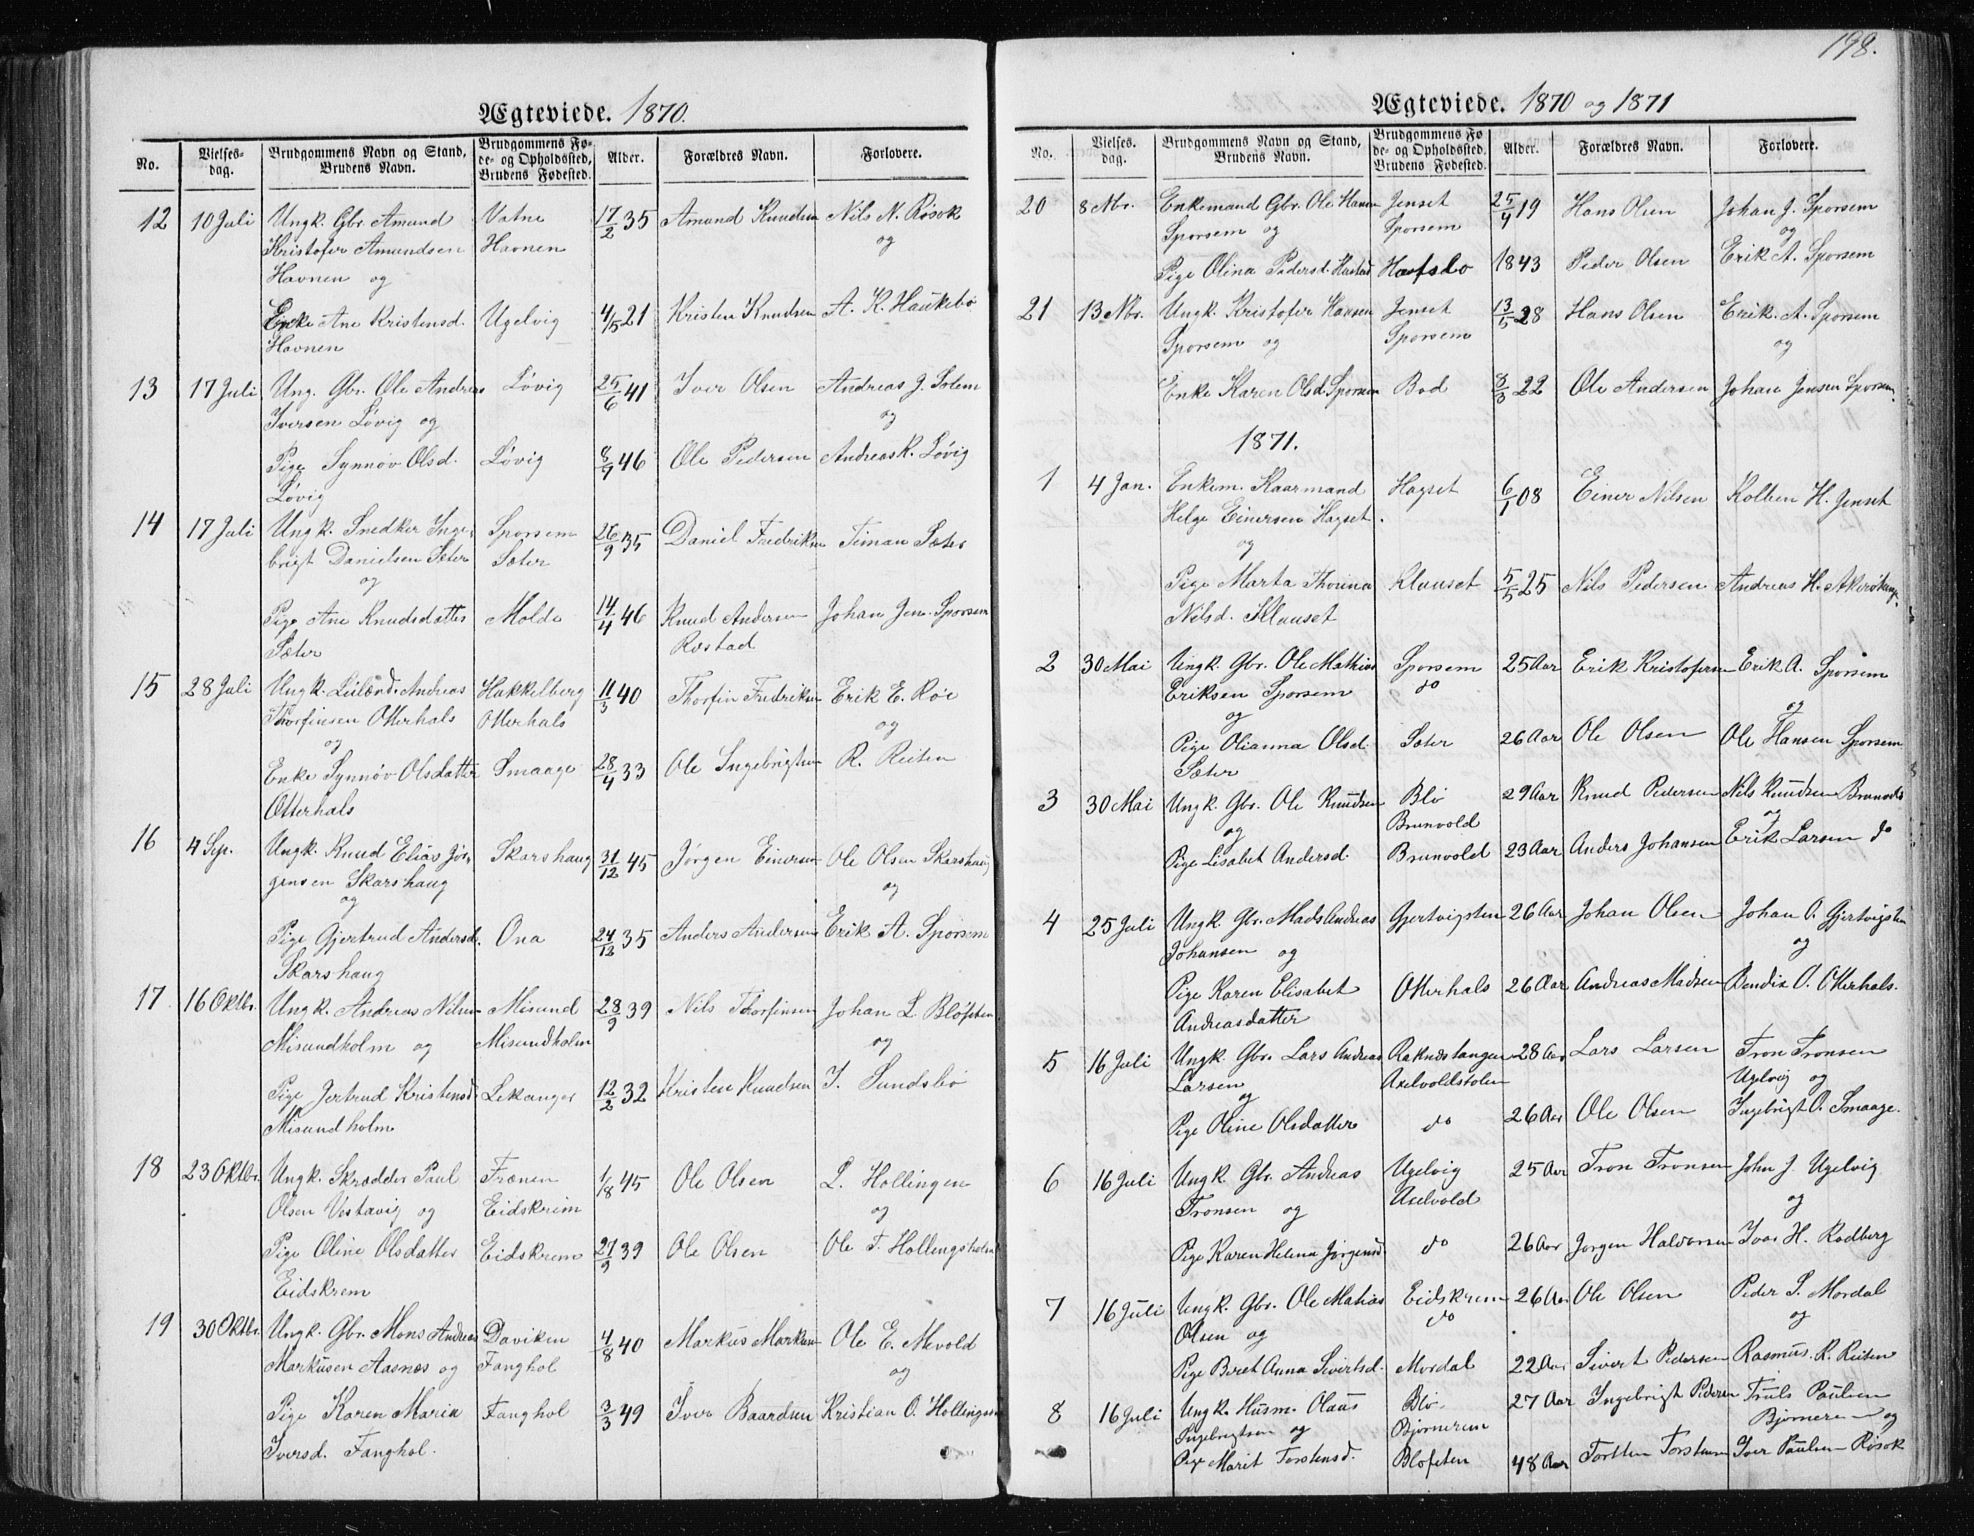 Ægteviede. 1870.
No. Vielses-dag. Brudgommens Navn og Stand, Brudens Navn. Brudgommens Fø-de- og Opholdssted, Brudens Fødested. Alder. Forældres Navn. Forlovere.
12 10 Juli Ungk. Gbr. Amund Vatne 17/2 35 Amund Knudsen Nils N. Røsok
Kristofer Amundsen Havnen og
Havnen og
Enke Ane Kristensd. Ugelvig 4/5 21 Kristen Knudsen A. K. Haukebø
Havnen
13 17 Juli Ung. Gbr. Ole Andreas Løvig 25/6 41 Iver Olsen Andreas J. Solem
Iversen Løvig og og
Pige Synnøv Olsd. Løvig 8/9 46 Ole Pedersen Andreas K. Løvig
Løvig
14 17 Juli Ungk. Snedker Inge- Sporsem 26/9 35 Daniel Fredriksen Timan Sæter
brigt Danielsen Sæter Sæter
og
Pige Ane Knudsdatter Molde 14/4 46 Knud Andersen Johan Jen. Sporsem
Sæter Rostad
15 28 Juli Ungk. Leilænd. Andreas Hakkelberg 11/3 40 Thorfin Fredriksen Erik E. Røe
Thorfinsen Otterhals Otterhals og
og
Enke Synnøv Olsdatter Smaage 28/4 33 Ole Ingebrigtsen R. Reiten
Otterhals
16 4 Sep. Ungk. Knud Elias Jør- Skarshaug 31/12 45 Jørgen Einersen Ole Olsen Skarshaug
gensen Skarshaug og
og
Pige Gjertrud Andersd. Ona 24/12 35 Anders Andersen Erik A. Sporsem
Skarshaug
17 16 Oktbr. Ungk. Andreas Nilsen Misund 28/9 39 Nils Thorfinsen Johan L. Bløfsten
Misundholm og Misundholm og
Pige Jertrud Kristensd. Lekanger 12/2 32 Kristen Knudsen I. Sundsbø
Misundholm
18 23 Oktbr. Ungk. Skrædder Paul Frænen 1/8 45 Ole Olsen L. Hollingen
Olsen Vestavig og Eidskrem og
Pige Oline Olsdatter Eidskrem 27/9 39 Ole Olsen Ole T. Hollingsholm
Eidskrem
19 30 Oktbr. Ungk. Gbr. Mons Andreas Daviken 4/8 40 Markus Markusen Ole E. Mevold
Markusen Aasnes og Fanghol og
Pige Karen Maria Fanghol 3/3 49 Iver Baardsen Kristian O. Hollingen
Iversd. Fanghol.
198.
Ægteviede. 1870 og 1871
No. Vielses-dag. Brudgommens Navn og Stand, Brudens Navn. Brudgommens Fø-de- og Opholdssted, Brudens Fødested. Alder. Forældres Navn. Forlovere.
20 8 Nbr. Enkemand Gbr. Ole Hansen Jenset 25/4 19 Hans Olsen Johan J. Sporsem
Sporsem og Sporsem og
Pige Olina Pedersd. Hustad Haafsbo 1843 Peder Olsen Erik A. Sporsem
21 13 Nbr. Ungk. Kristofer Hansen Jenset 13/5 28 Hans Olsen Erik A. Sporsem
Sporsem og Sporsem og
Enke Karen Olsd. Sporsem Bod 8/3 22 Ole Andersen Johan Jensen Sporsem.
1871.
1 4 Jan. Enkem. Kaarmand Hagset 6/1 08 Einer Nilsen Kolben H. Jenset
Helge Einersen Hagset.
og
Pige Marta Thorina Klauset 5/5 25 Nils Pedersen Andreas H. Akerøhaug.
Nilsd. Klauset
2 30 Mai Ungk. Gbr. Ole Mathias Sporsem 25 Aar Erik Kristofersen Erik A. Sporsem
Eriksen Sporsem do
og og
Pige Olianna Olsd. Sæter 26 Aar Ole Olsen Ole Hansen Sporsem
Sæter
3 30 Mai Ungk. Gbr. Ole Knudsen Blø 29 Aar Knud Pedersen Nils Knudsen Brunvold
og Brunvold og
Pige Lisabet Andersd. Brunvold 23 Aar Anders Johansen Erik Larsen do
4 25 Juli Ungk. Gbr. Mads Andreas Gjertvigsten 26 Aar Johan Olsen Johan O. Gjertvigsten
Johansen og og
Pige Karen Elisabet Otterhals 26 Aar Andreas Madsen Bendix O. Otterhals.
Andreasdatter
5 16 Juli Ungk. Gbr. Lars Andreas Raknestangen 28 Aar Lars Larsen Tron Tronsen
Larsen Axelvoldstolen Ugelvig og
og
Pige Oline Olsdatter do 26 Aar Ole Olsen Ingebrigt O. Smaage.
6 16 Juli Ungk. Gbr. Andreas Ugelvig 25 Aar Tron Tronsen John J. Ugelvig
Tronsen og Axelvold og
Pige Karen Helena Jørgensd. do 26 Aar Jørgen Halvorsen Ivar H. Rødberg
7 16 Juli Ungk. Gbr. Ole Matias Eidskrem 26 Aar Ole Olsen Peder S. Mordal
Olsen og do og
Pige Beret Anna Sivertsd. Mordal 22 Aar Sivert Pedersen Rasmus R. Reiten
8 16 Juli Ungk. Husm. Olaus Blø 27 Aar Ingebrigt Pedersen Truls Paulsen
Ingebrigtsen og Bjørnerem Bjørnerem og
Pige Marit Torstensd. Bløfsten 48 Aar Torsten Torstensen Iver Paulsen Røsok